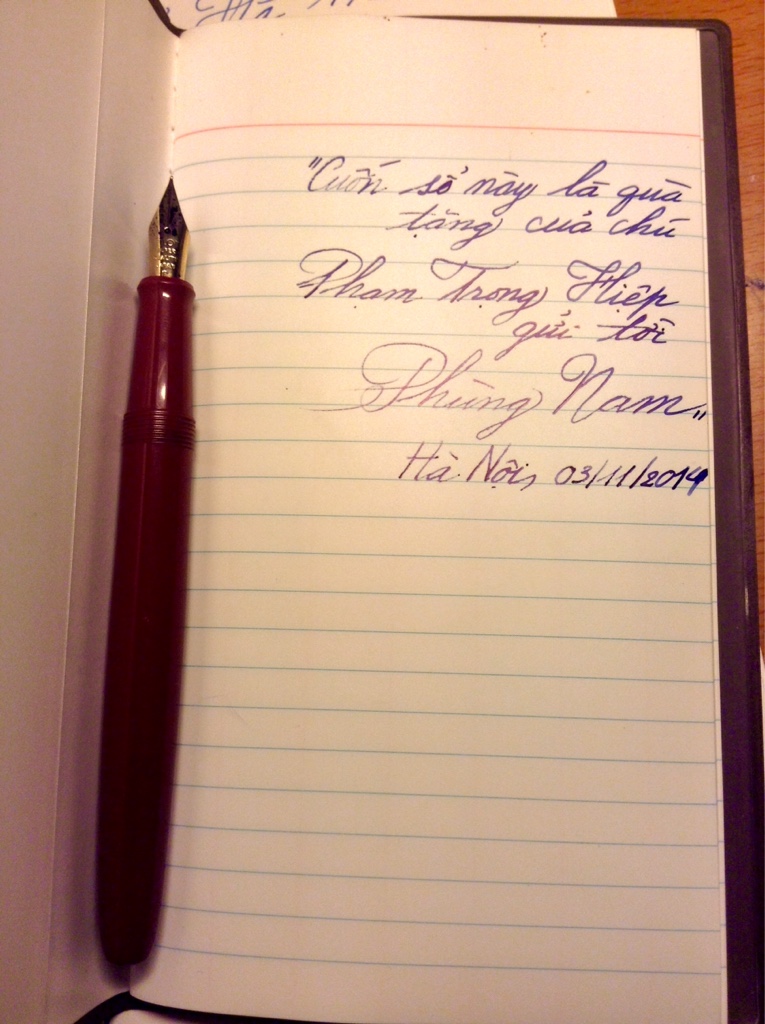 "Cuốn sổ này là quà
tặng của chú
Phạm Trọng Hiệp
gửi tới
Phùng Nam"
Hà Nội, 03/11/2014